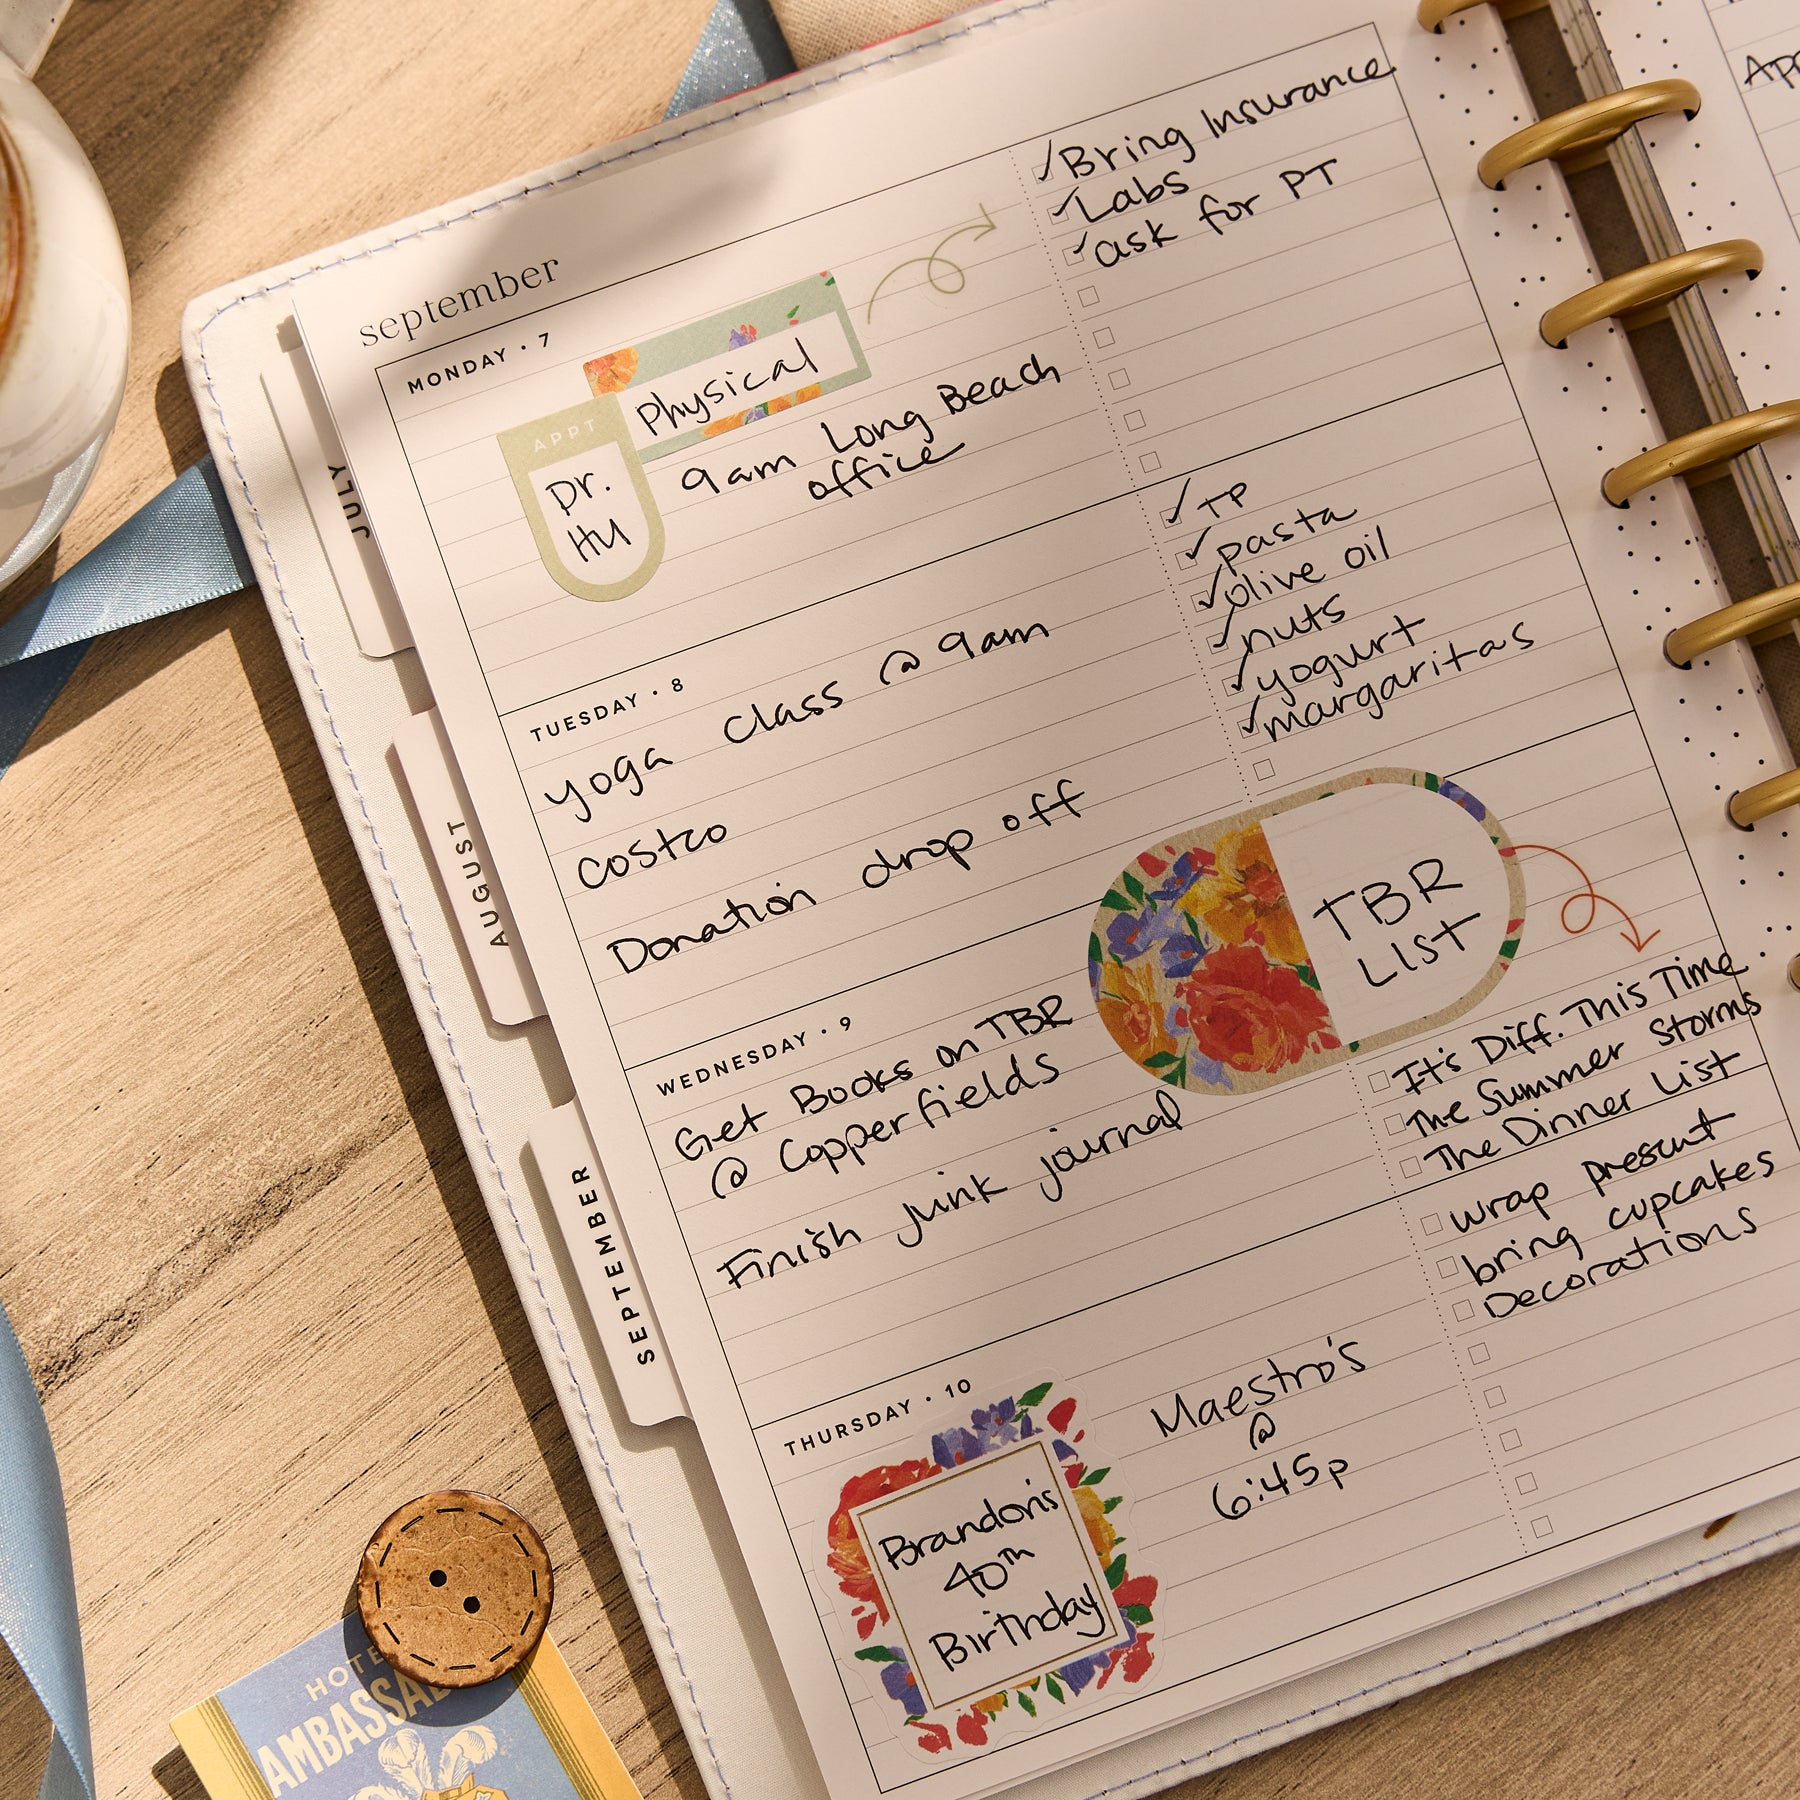 september
MONDAY • 7
Physical
APPT
Dr.
HU
9am Long Beach
office
Bring Insurance
Labs
ask for PT
TUESDAY • 8
yoga class @ 9am
costco
Donation drop off
TP
pasta
olive oil
nuts
yogurt
margaritas
WEDNESDAY • 9
Get Books on TBR
@ Copperfields
Finish junk journal
TBR
LIST
It's Diff. This Time
The Summer Storms
The Dinner List
THURSDAY • 10
Brandon's
40th
Birthday
Maestro's
@
6:45p
wrap present
bring cupcakes
Decorations
JULY
AUGUST
SEPTEMBER
HOTE
AMBASSAD